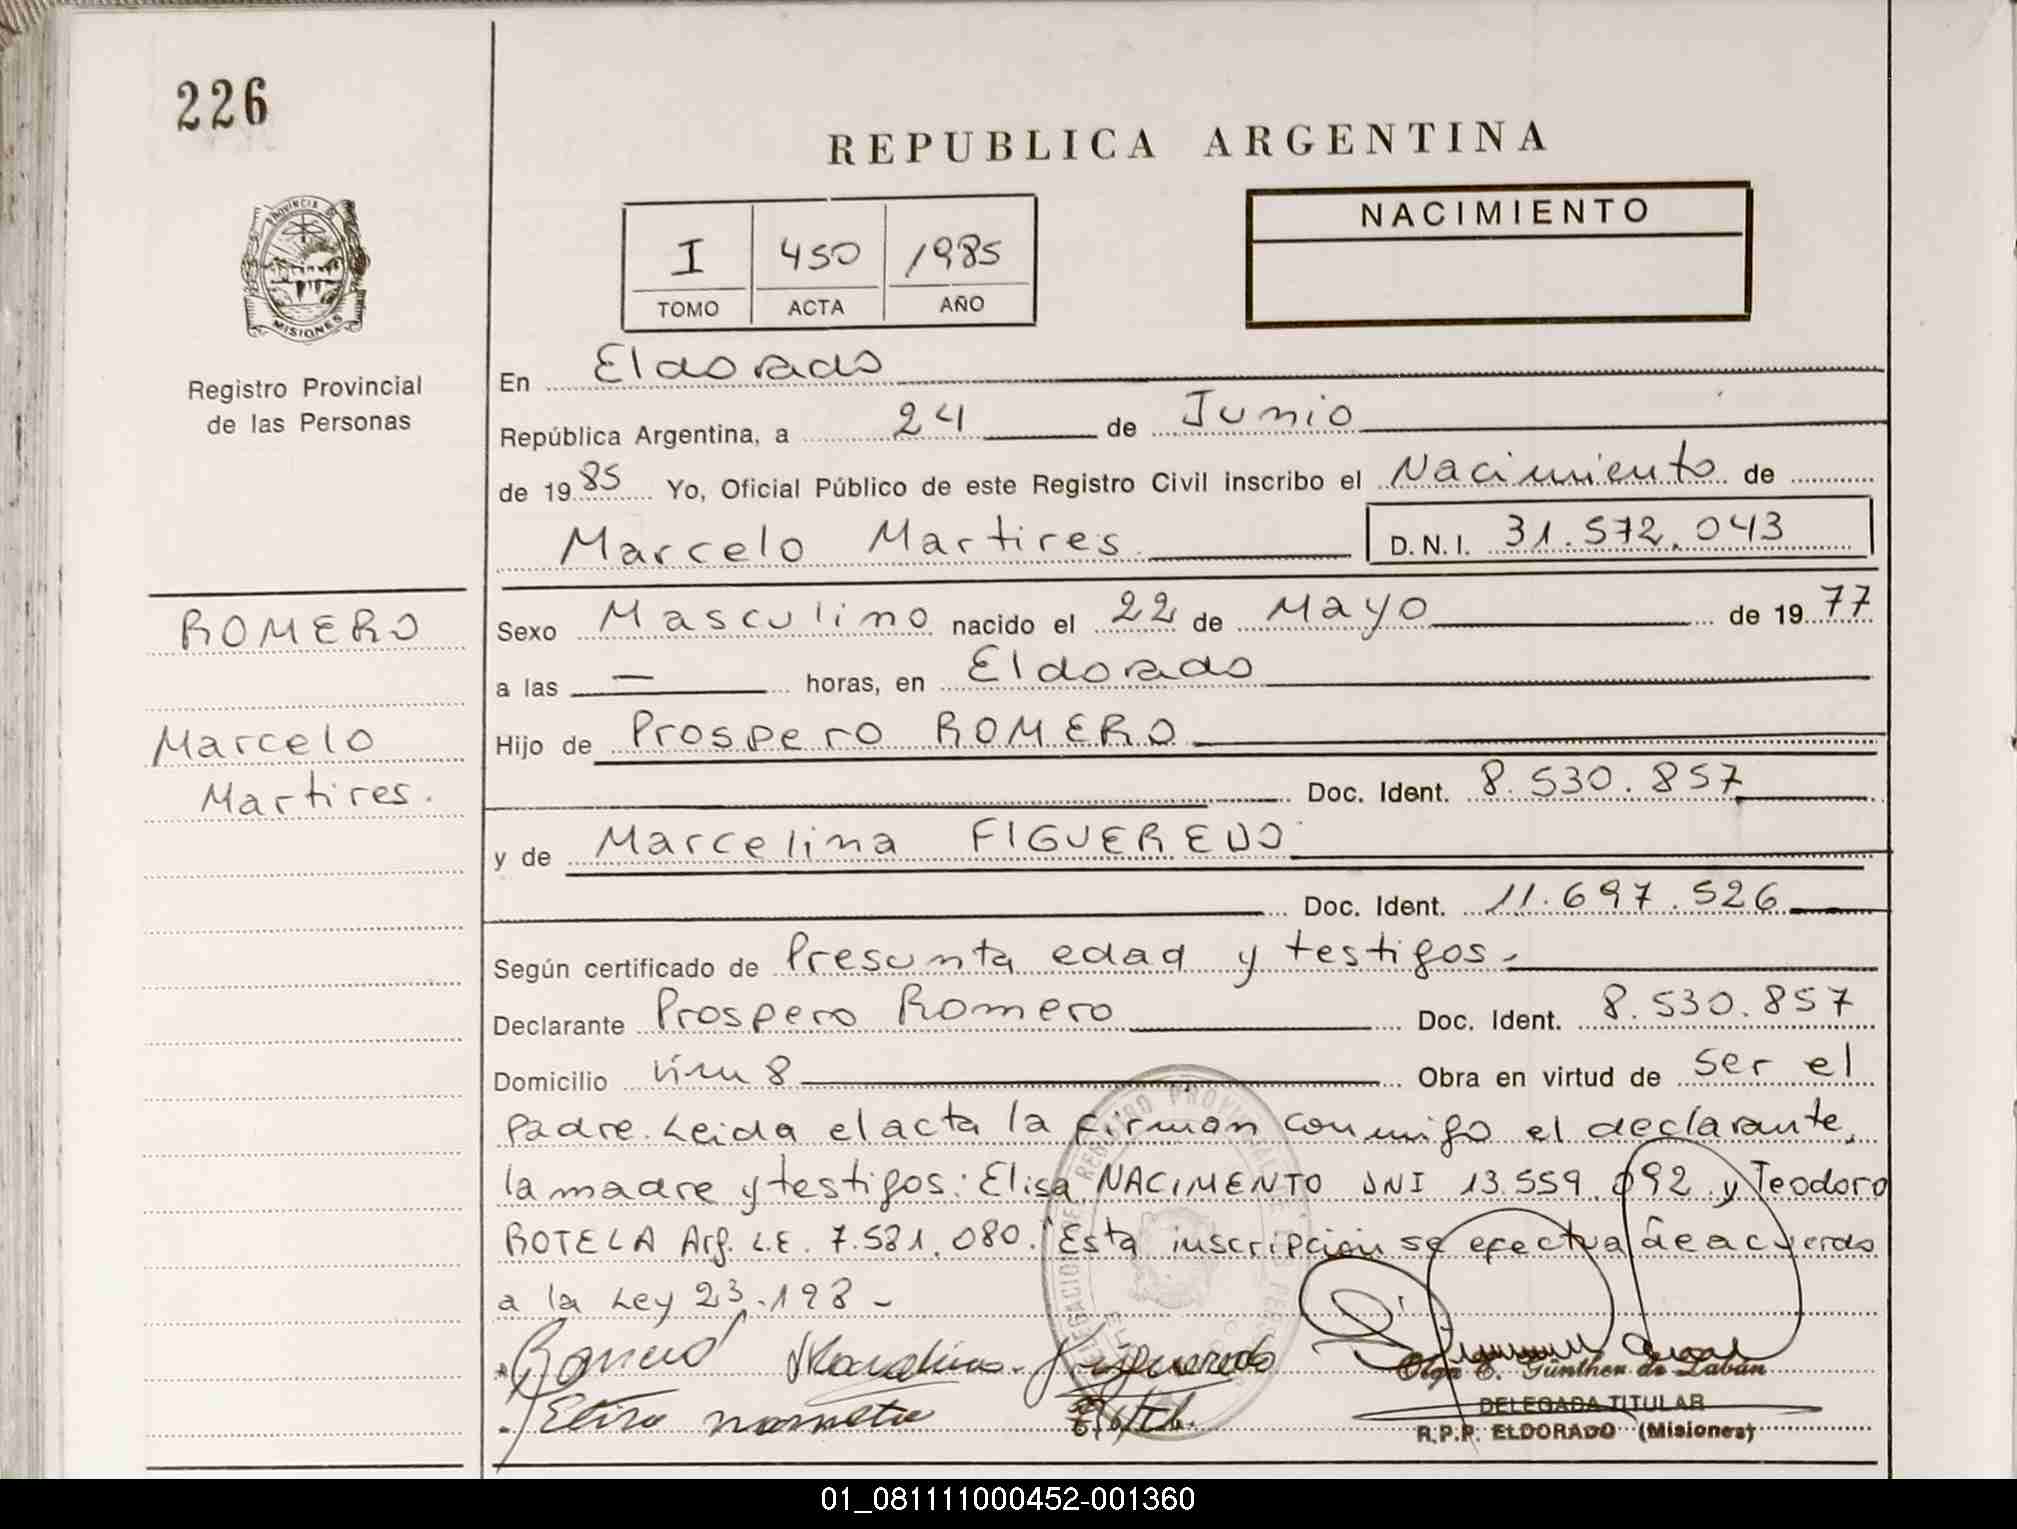 226
REPUBLICA ARGENTINA
PROVINCIA DE
MISIONES
Registro Provincial
de las Personas
I 450 1985
TOMO ACTA AÑO
NACIMIENTO
En Eldorado
República Argentina, a 24 de Junio
de 1985 Yo, Oficial Público de este Registro Civil inscribo el Nacimiento de
Marcelo Martires D.N.I. 31.572.043
ROMERO
Marcelo
Martires.
Sexo Masculino nacido el 22 de Mayo de 1977
a las — horas, en Eldorado
Hijo de Prospero ROMERO
Doc. Ident. 8.530.857
y de Marcelina FIGUEREDO
Doc. Ident. 11.697.526
Según certificado de Presunta edad y testigos.
Declarante Prospero Romero Doc. Ident. 8.530.857
Domicilio km 8 Obra en virtud de ser el
Padre. Leida el acta la firman conmigo el declarante,
la madre y testigos: Elisa NACIMENTO DNI 13.559.092 y Teodoro
ROTELA Arg. L.E. 7.581.080. Esta inscripción se efectua de acuerdo
a la Ley 23.198 -
Romero Marcelina Figueredo
Olga E. Günther de Labán
DELEGADA TITULAR
R.P.P. ELDORADO (Misiones)
01_081111000452-001360